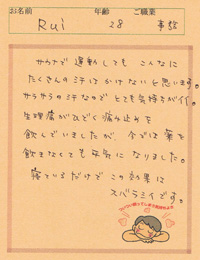 お名前 年齢 ご職業
Rui 28 事務
サウナで運動しても こんなに
たくさんの汗はかけないと思います。
サラサラの汗なので とても気持ちがイイ。
生理痛がひどく痛み止めを
飲んでいましたが、今では薬を
飲まなくても平気になりました。
寝ているだけで この効果は
スバラシイです。